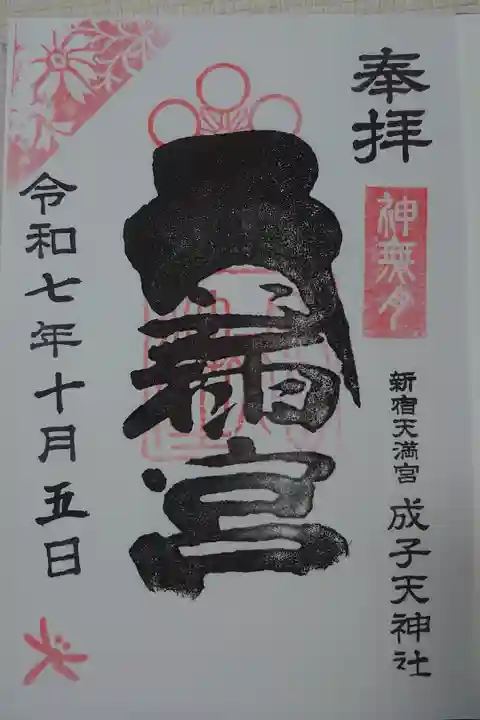 奉拝
神無月
新宿天満宮 成子天神社
天満宮
令和七年十月五日